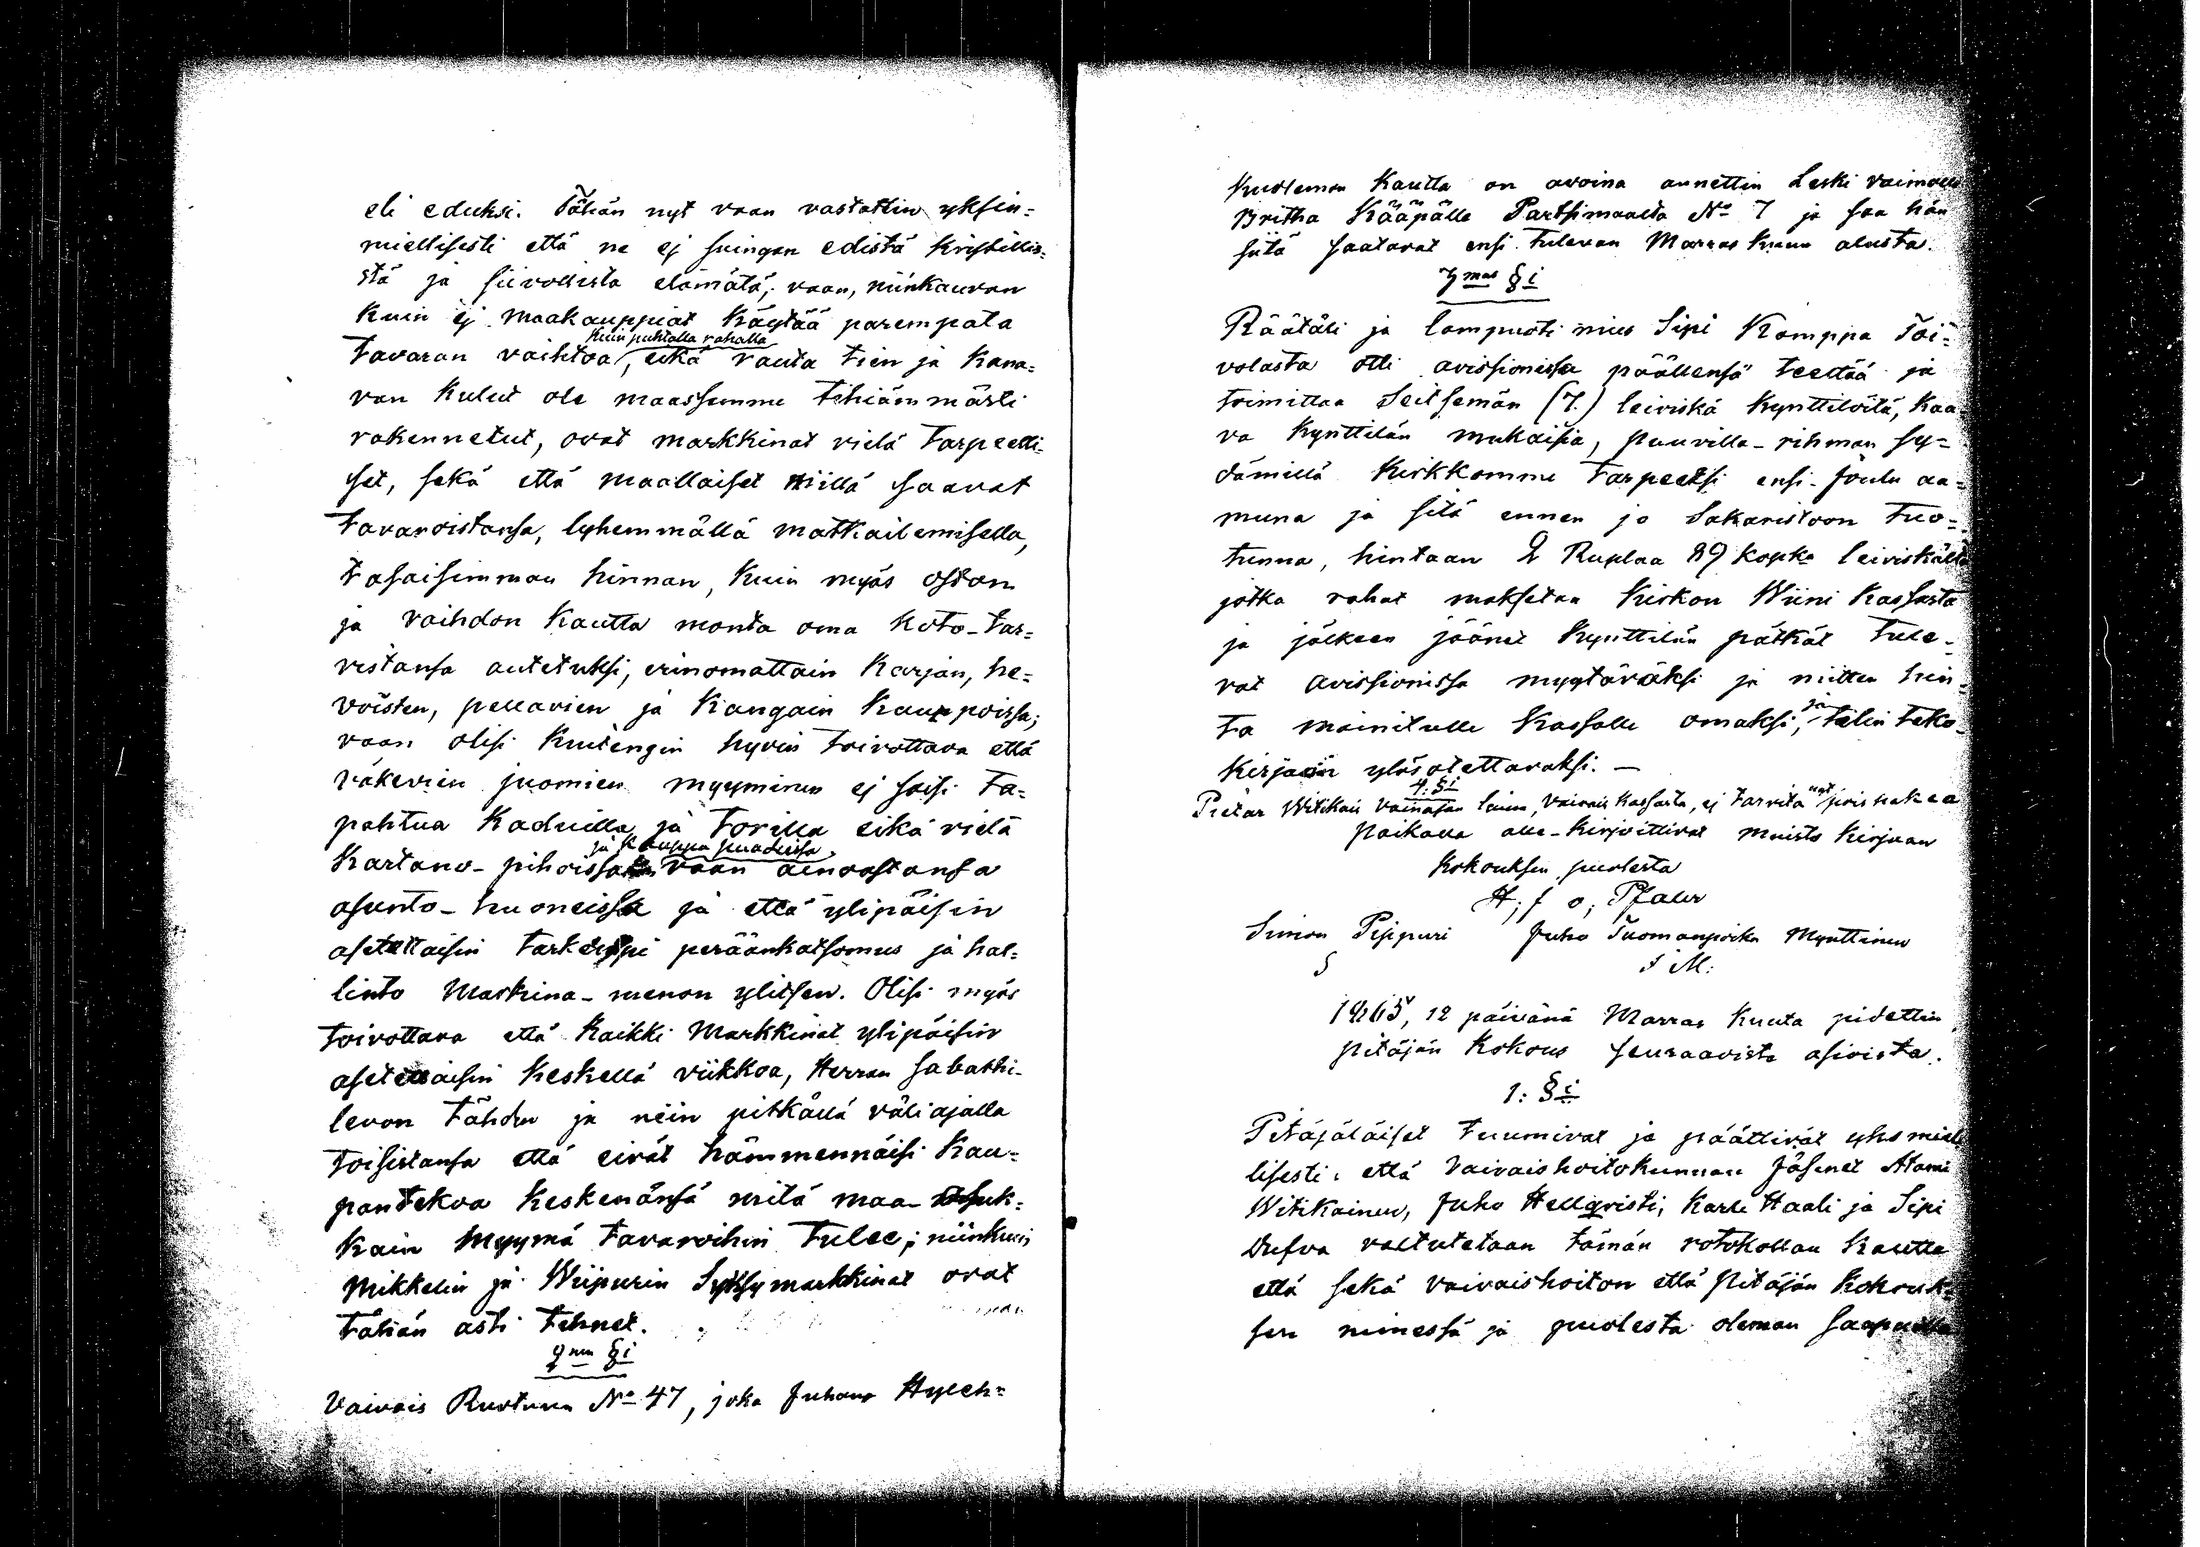 eli eduksi. Tähän nyt vaan vastattiin yksin=
mielisesti että ne ej suingan edistä kristillis=
stä ja siivollista elämätä; vaan, niinkauvan
kuin ej maakauppiat käytää parempata
kuin puhtalla rahalla
tavaran vaihtoa, eikä rauta tien ja kana=
van kulut ole maassamme tihiämmästi
rakennetut, ovat markkinat vielä tarpeelli=
set, sekä että maallaiset niillä saavat
tavaroistansa, lyhemmällä matkailemisella,
tasaisimman hinnan, kuin myös oston
ja vaihdon kautta monta oma koto-tar=
vistansa autetuksi, erinomattain karjan, he=
voisten, pellavien ja kangain kauppoissa;
vaan olisi kuitengin hyvin toivottava että
väkevien juomien myyminen ej saisi ta=
pahtua kaduilla ja torilla eikä vielä
ja kauppa puadissa
kartano-pihoissa vaan ainoastansa
asunto-huoneissa ja että ylipäisin
asetettaisin tarkempi peräänkatsomus ja hal=
linto markina-menon ylitsen. Olisi myös
toivottava että kaikki markkinat ylipäisin
asetettaisin keskellä viikkoa, Herran sabathi-
levon tähden ja niin pitkällä väliajalla
toisistansa että eivät hämmennäisi kau=
pantekoa keskenänsä mitä maa-asuk=
kain myymä tavaroihin tulee; niinkuin
Mikkelin ja Wiipurin Syksymarkkinat ovat
tähän asti tehnet.
§i
Vaivais Ruotunen No 47, joka Juhana Hylch=
kuoleman kautta on avoina annettin Leski vaimolle
Britha Kääpälle Partsimaalta No 7 ja saa hän
siitä saatavat ensi tulevan Marraskuun alusta.
7mas §i
Räätäli ja lampuoti mies Sipi Komppa Toi=
volasta otti avissionissa päällensä teettää ja
toimittaa Seitsemän (7.) leiviskä kynttilöitä, kaa=
va kynttilän mukaisia, puuvilla-rihman sy=
dämillä kirkkomme tarpeeksi ensi-Joulu aa=
muna ja sitä ennen jo Sakaristoon tuo=
tunna, hintaan 2 Ruplaa 89 kopka leiviskältä
jotka rahat maksetaa kirkon Wiini kassasta
ja jälkeen jäänet kynttilän pätkät tule-
vat avissionissa myytäväksi ja niitten hin=
ta mainitulle kassalle omaksi, ja tilin teko=
kirjaan ylösotettavaksi. —
§i
Pietar Witikan vainajan laina, vaivais kassasta, ej tarvita nyt pois hakea
paikalla alle-kirjoittivat muisto kirjaan
kokouksen puolesta
H; f o; Pfaler
Simon Pippuri Juho Tuomanpoika Mynttinen
S I M:
1865, 12 päivänä Marras kuuta pidettin
pitäjän kokous seuraavista asioista.
1: §i
Pitäjäläiset tuumivat ja päättivät yksmie=
lisesti: että Vaivaishoitokunnan Jäsenet Atami
Witikainen, Juho Hellqvisti, Karle Haali ja Sipi
Dufva valtutetaan tämän rotokollan kautta
että sekä vaivaishoiton että pitäjän kokouk=
sen nimessä ja puolesta oleman saapuvilla